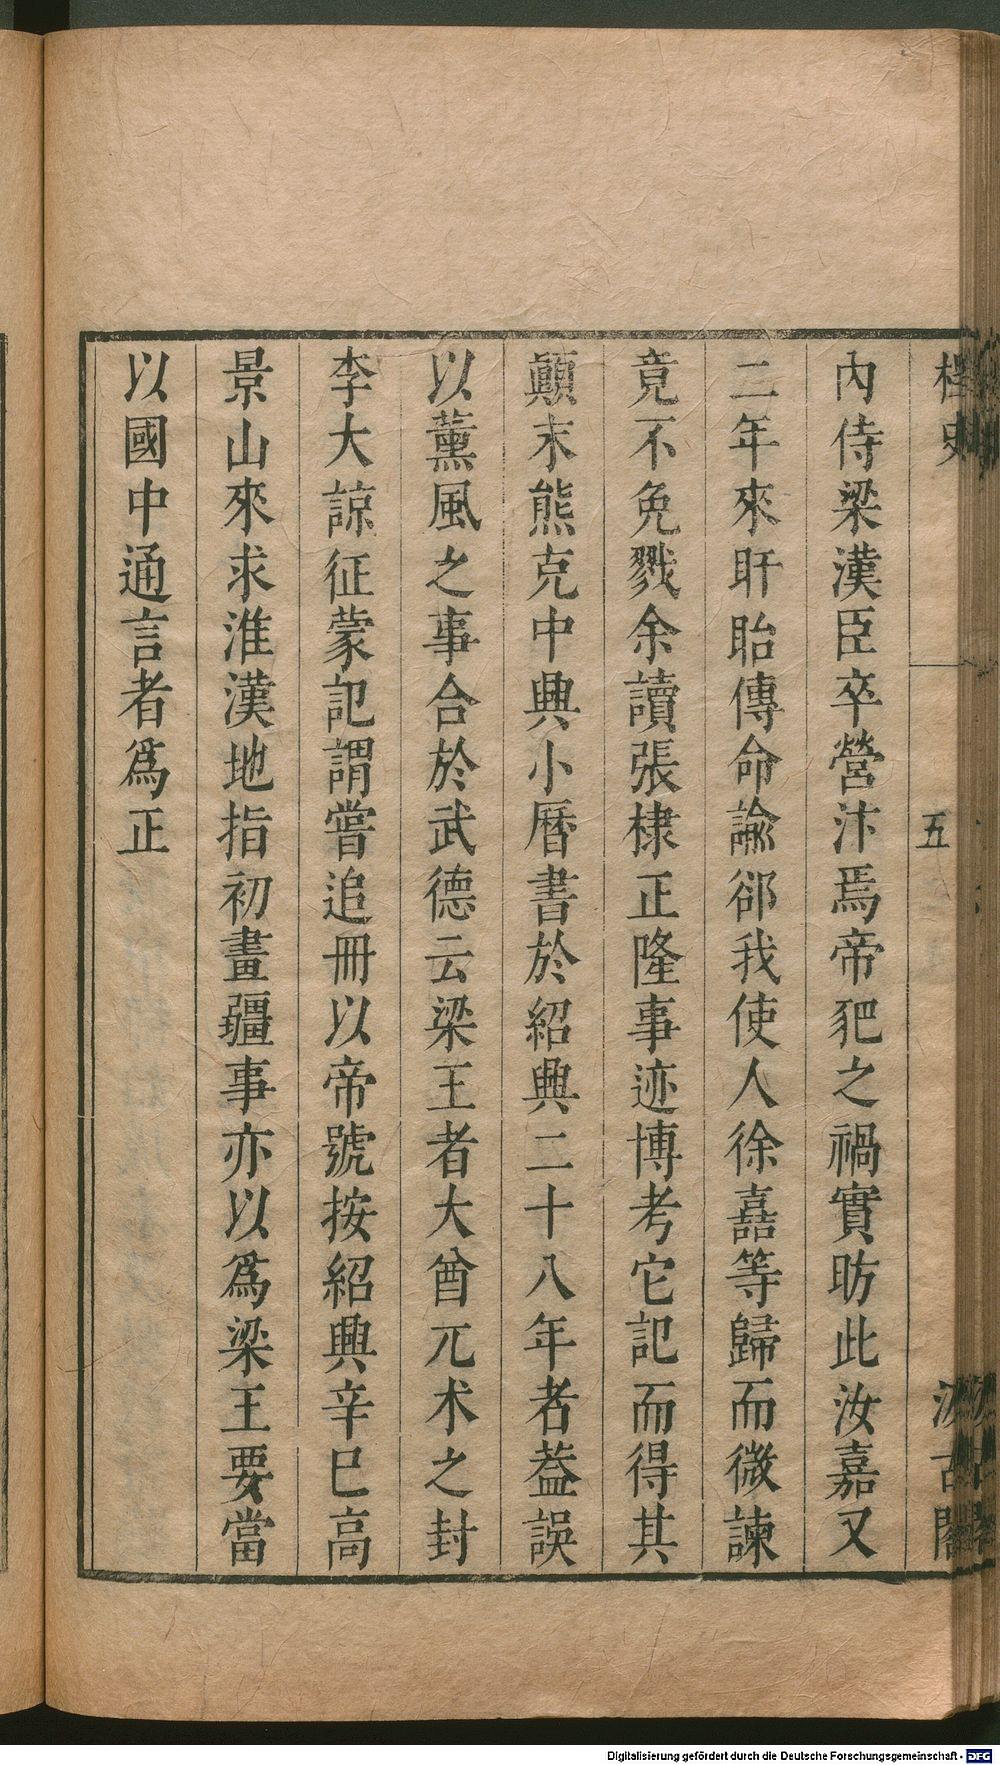 桯史
五
汲古閣
內侍梁漢臣卒營汴焉帝犯之禍實昉此汝嘉又
二年來盱眙傳命諭郤我使人徐嚞等歸而微諫
竟不免戮余讀張棣正隆事迹博考它記而得其
顚末熊克中興小曆書於紹興二十八年者葢誤
以薰風之事合於武德云梁王者大酋兀术之封
李大諒征蒙記謂嘗追冊以帝號按紹興辛巳高
景山來求淮漢地指初畫疆事亦以爲梁王要當
以國中通言者爲正
Digitalisierung gefördert durch die Deutsche Forschungsgemeinschaft - DFG